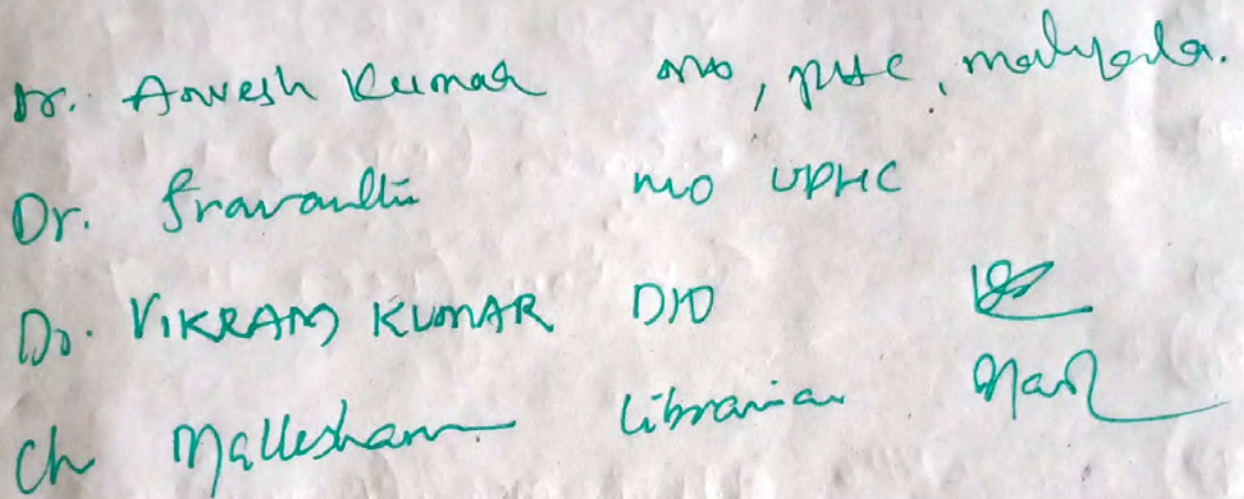 Dr. Anvesh Kumar MO, PHC, Malyala.
Dr. Sravanthi MO UPHC
Dr. VIKRAM KUMAR DIO
Ch Mallesham Librarian